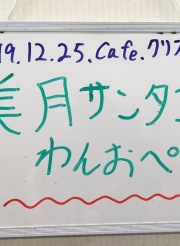 19.12.25.Cafe.クリス
美月サンタコ
わんおペ